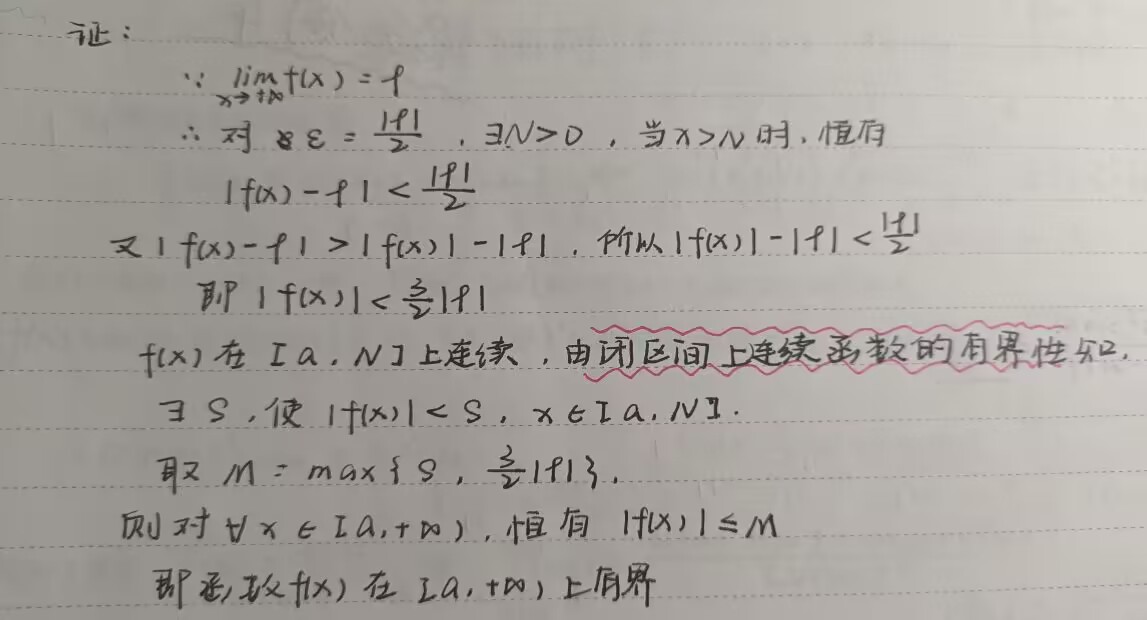 证:
∵ lim f(x) = f
x→+∞
∴ 对 ε = |f|/2 , ∃N>0 , 当x>N时, 恒有
|f(x) - f| < |f|/2
又 |f(x) - f| > |f(x)| - |f| , 所以 |f(x)| - |f| < |f|/2
即 |f(x)| < 3/2|f|
f(x) 在 [a, N] 上连续, 由闭区间上连续函数的有界性知,
∃ S, 使 |f(x)| < S, x∈[a, N].
取 M = max{S, 3/2|f|},
则对 ∀x∈[a,+∞), 恒有 |f(x)| ≤ M
即函数f(x) 在 [a,+∞) 上有界